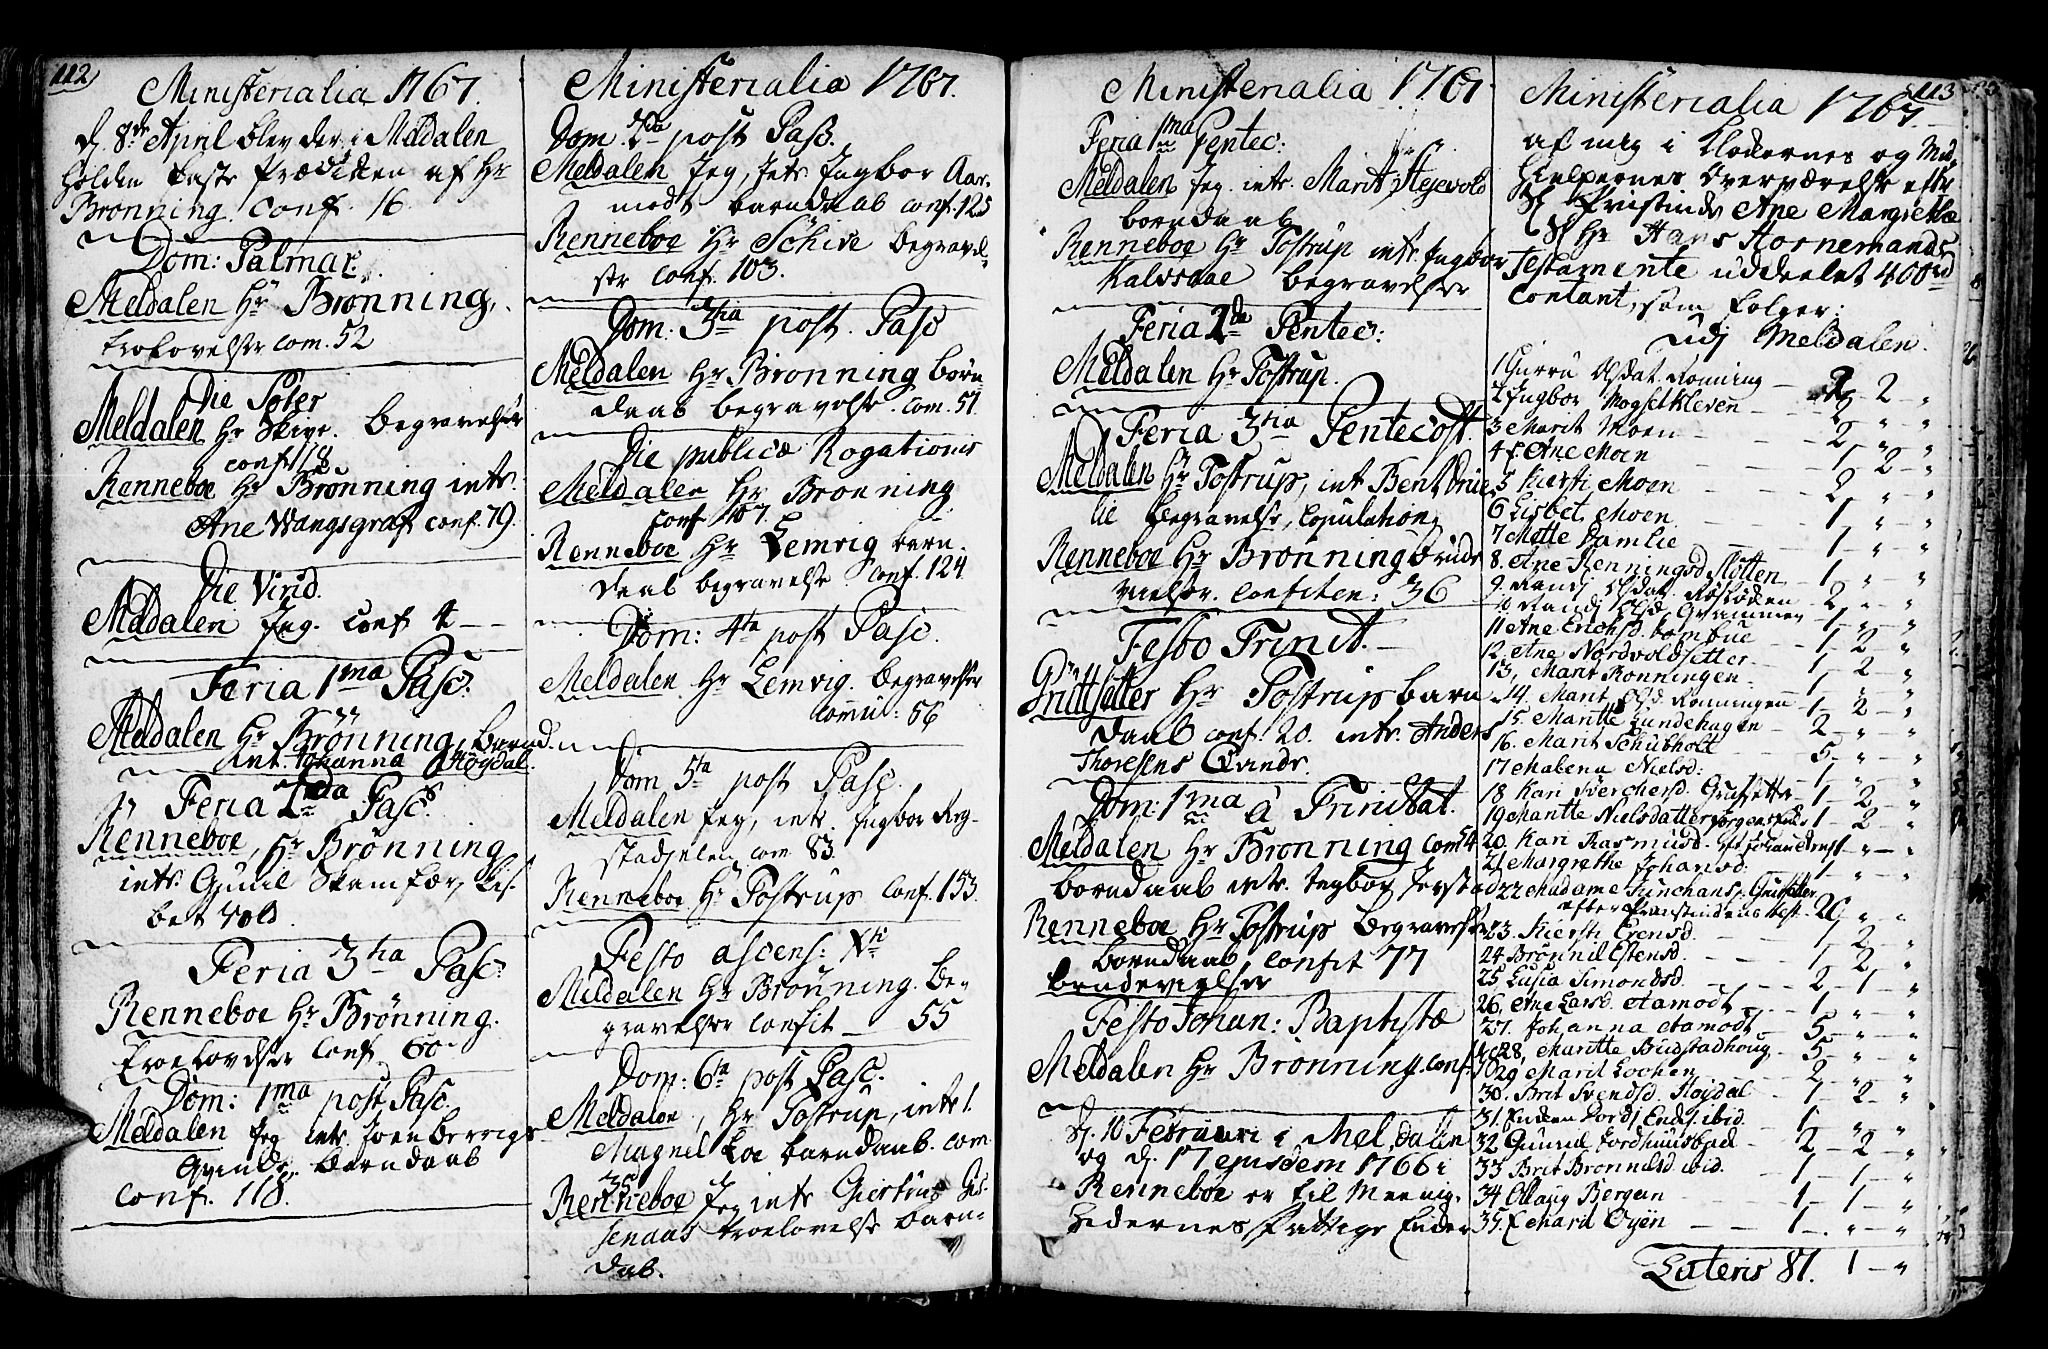 112
Ministerialia 1767.
d. 8de April blev der i Meldalen
holden faste Prædiken af Hr
Brønning. Conf. 16.
Dom: Palmar:
Meldalen Hr Brønning,
trolovelser com. 52
Die Viriд.
Meldalen Hr Skive. Begravelser
conf. 118
Renneboe Hr Brønning intr.
Ane Wangsgraf conf. 79.
Die Virid.
Meldalen Jeg. Conf 4
Feria 1ma Pasc:
Meldalen Hr Brønning, barnd.
int. Johanna Høgdal.
Feria 2da Pasc.
Renneboe, Hr Brønning
intr. Gunil Skamfær, Lis-
bet Vold.
Feria 3tia Pasc:
Renneboe Hr Brønning.
Troelovelser Conf. 60
Dom: 1ma post Pasc.
Meldalen Jeg intr. Joen Berrigs
Qvinde, Barndaab
Conf. 118.
Ministerialia 1767.
Dom. 2da post Pasc.
Meldalen Jeg, Intr. Ingbor Aar-
modt barndaab conf. 125
Renneboe Hr Schive begravel-
ser Conf. 103.
Dom. 3tia post. Pasc
Meldalen Hr Brønning børn
daab begravelse. com. 51.
Die publicæ Rogationis
Meldalen Hr Brønning
Conf 107.
Renneboe Hr Lemvig barn
daab begravelse Conf. 124
Dom: 4ta post Pasc.
Meldalen Hr Lemvig. begravelser
Comu: 56
Dom 5ta post Pasc.
Meldalen Jeg, intr. Ingbor Reg-
stadjelen com 83.
Renneboe Hr Tostrup Conf. 153.
Festo ascens: Xti
Meldalen Hr Brønning. be-
gravelser Confit 55
Dom: 6ta post Pasc.
Meldalen, Hr Tostrup, intr.
Magnel Loe barndaab. com
35
Renneboe Jeg intr Giertrud Gis-
senaas troelovelse barn-
dab.
Ministerialia 1767
Feria 1ma Pentec:
Meldalen Jeg. intr. Marit Hejevold
borndaab
Renneboe Hr Tostrup intr. Ingbor
Kalvsaae begravelser
Feria 2da Pentec:
Meldalen Hr Tostrup.
Feria 3tia Pentecost.
Meldalen Hr Tostrup, int Bent Drue
lie begravelse, Copulation
Renneboe Hr Brønning brude
vielser. Confiten: 36
Festo Trinit.
Grütsetter Hr Tostrup barn
daab conf. 20. intr. Anders
Thoresens Qvinde.
Dom: 1ma à Trinitat.
Meldalen Hr Brønning com 54
borndaab intr. Ingbor Jerstad
Renneboe Hr Tostrup begravelse
borndaab, Confit 77
brudevielser
Festo Johan: Baptistæ
Meldalen Hr Brønning. conf.
d. 10 Februari i Meldalen
og d. 17 ejusdem 1766 i
Renneboe er til Meenig-
hedernes fattige
113
Ministerialia 1767.
af mig i Klokernes og Med-
hielpernes overværelse efter
Sl Provstinde Ane Margrethæ
Sl Hr Hans Hornemands
Testamente uddeelet 400rd
contant, som følger:
udj Meldalen.
1 Gurru Olsdat. Rønning 2 2 "
2 Ingbor Mogsetkleven " "
3 Marit Moen 2 " "
4 Ane Moen 1 2 "
5 Kiersti Moen 2 " "
6 Lisbet Moen 1 " "
7 Mette Damlie 1 " "
8. Ane Henningsd. Slotten 1 " "
9. Randj Olsdat. Røskoden 2 " "
10 Randj Olsd. Grammen 1 " "
11 Ane Erichsd. Lombue 1 2 "
12. Ane Nordvoldsetter 1 2 "
13, Marit Rønningen 1 " "
14. Marit Olsd. Rønningen 1 2 "
15. Maritte Lundehagen 2 " "
16. Marit Schubholt 5 " "
17 Malena Nielsd: 1 " "
18 Kari Sverchersd. Grutsetter 1 2 "
19 Maritte Nielsdatter 1 2 "
20. Kari Rasmusd. 1 " "
21 Margrethe Johansd: 1 " "
22 Madame Grutsetter
efter Provstindens test 20 " "
23. Kiersti Erensd. 1 2 "
24 Brønnil Estensd. 1 2 "
25 Lusia Simonsd. 2 1 "
26. Ane Larsd. Aamodt 1 " "
27. Johanna Aamodt 5 " "
28, Maritte Budstadhoug 5 " "
29 Marit Loohen 2 " "
30. Brit Svendsd. Høgdal 1 2 "
31. ibid. 1 " "
32 Gunnil 2 2 "
33 Brit Brønnelsd. ibid. 1 1 "
34 Ollaug Bergan 1 1 "
35. Marit Øyen 1 " "
Lateris 87. 1 "